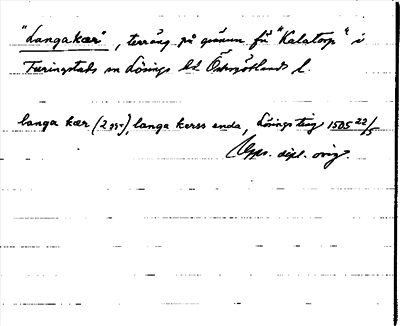 "Langakær", terräng på gränsen för "Kalatorp" i
Furingstads sn Lösings hd Östergötlands l.
langa kær (2 ggr), langa kerss enda, Lösings ting 1505 22/5
Upps. dipl. orig.